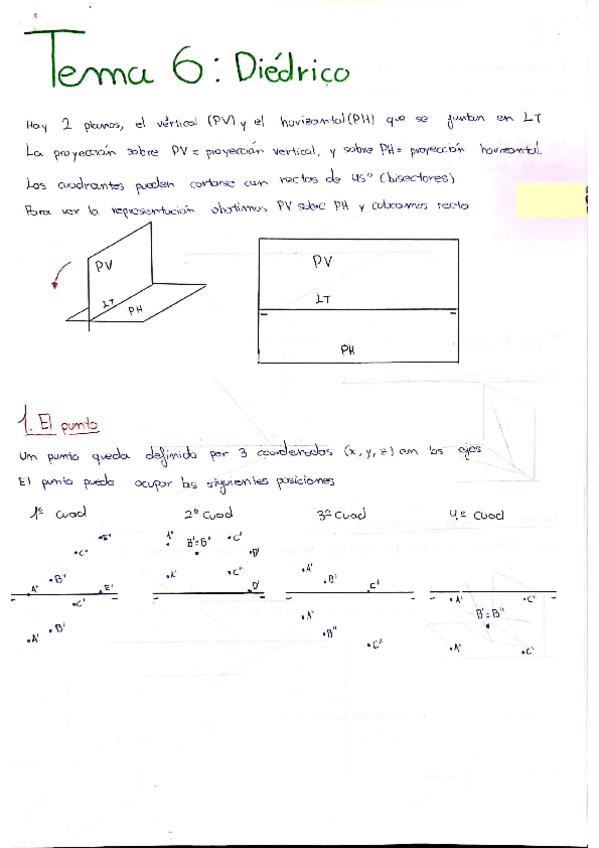 Tema 6: Diédrico
Hay 2 planos, el vértical (PV) y el horizontal (PH) que se juntan en LT
La proyección sobre PV = proyección vertical, y sobre PH = proyección horizontal.
Los cuadrantes pueden cortarse con rectas de 45° (bisectores)
Para ver la representución abatimos PV sobre PH y colocamos recto
PV
LT
PH
PV
LT
PH
1. El punto
Un punto queda definido por 3 coordenadas (x, y, z) con los ejes
El punto puede ocupar las siguientes posiciones
1º cuad
2º cuad
3º cuad
4º cuad
E''
C''
B''
A''
E'
C'
B'
A'
A'
B'=B''
C'
D'
A'
C''
D'
A'
B'
C'
A'
B''
C'
A'
C'
B'=B''
A'
C'